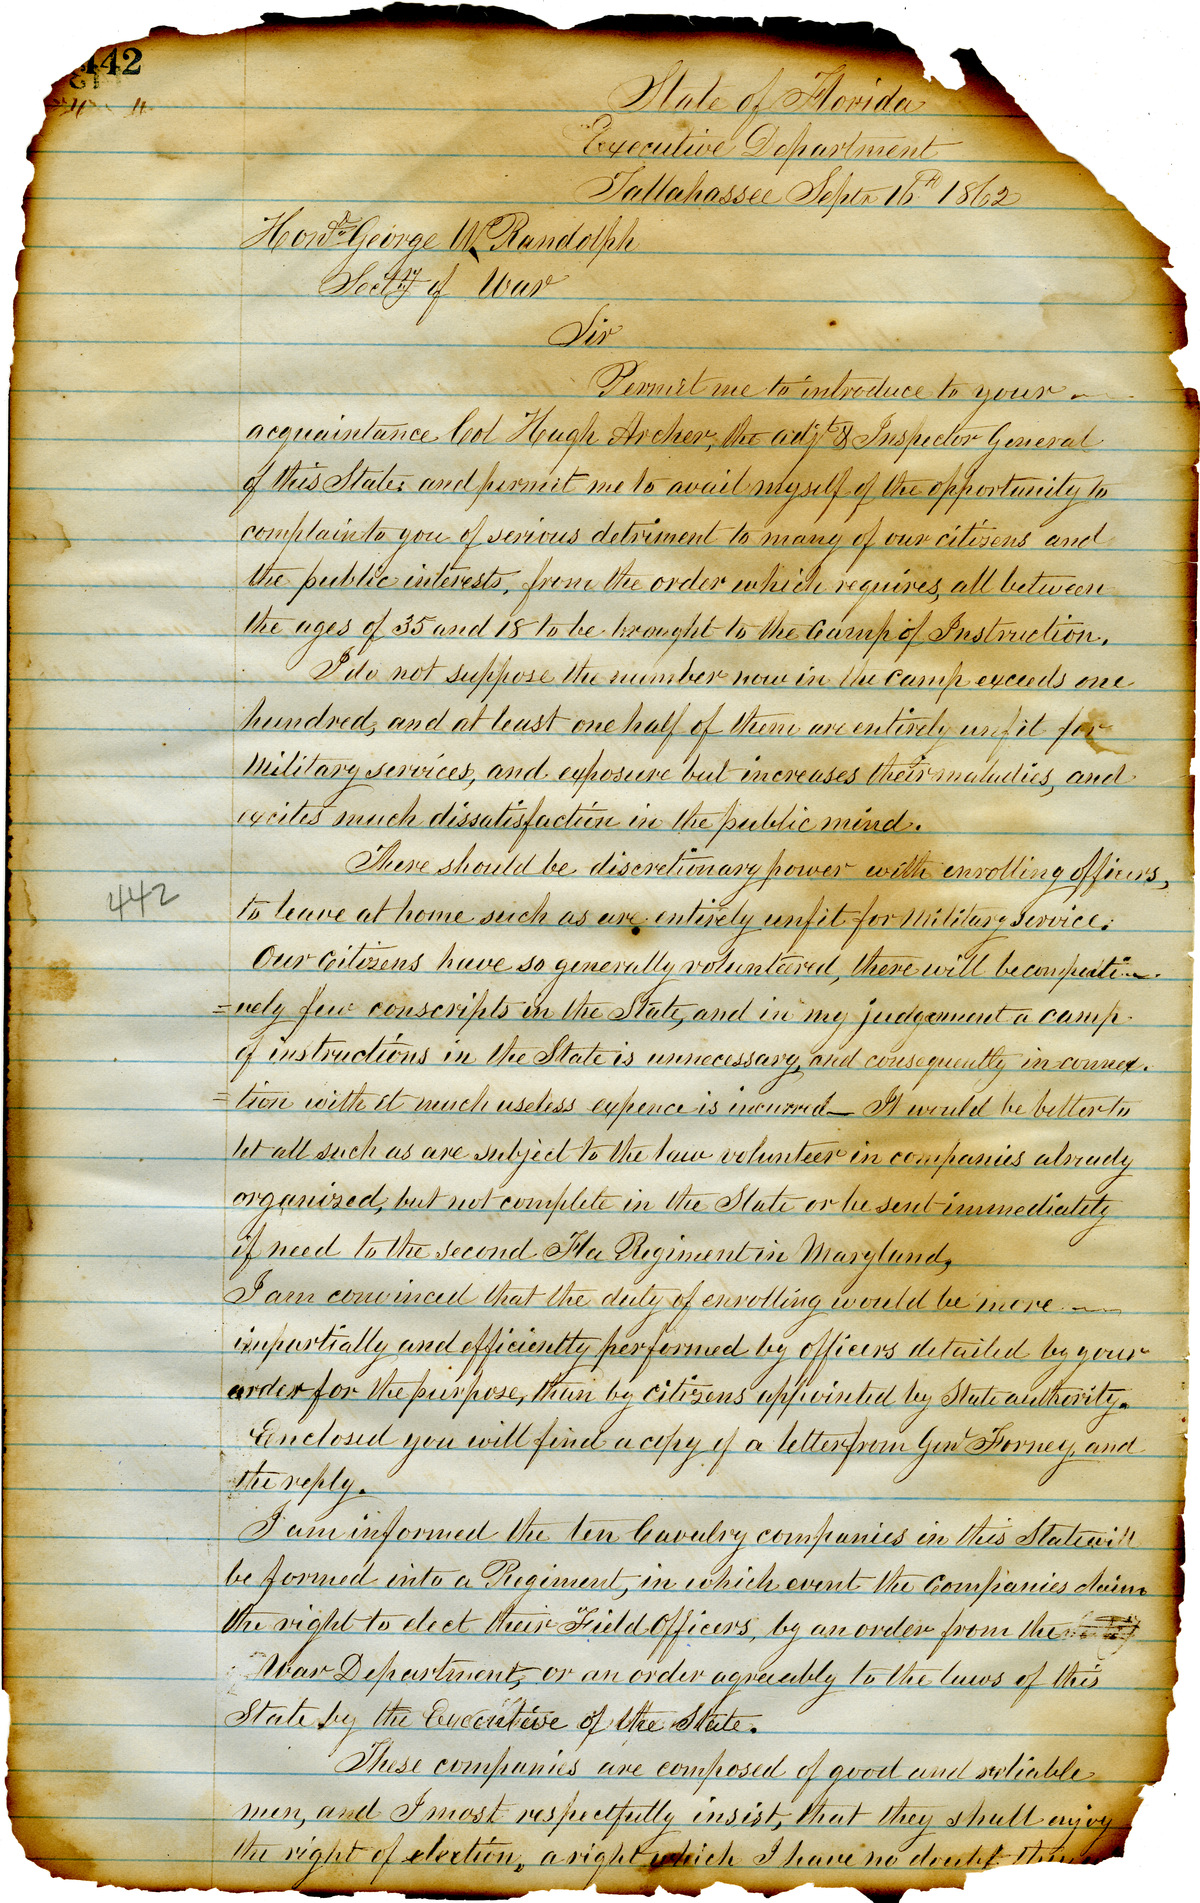 442
State of Florida
Executive Department
Tallahassee Septr 16th 1862
Honr George W Randolph
Secty of War
Sir
Permit me to introduce to your
acquaintance Col Hugh Archer, the adjt & Inspector General
of this State; and permit me to avail myself of the opportunity to
complain to you of serious detriment to many of our citizens and
the public interests, from the order which requires, all between
the ages of 35 and 18 to be brought to the Camp of Instruction.
I do not suppose the number now in the camp exceeds one
hundred, and at least one half of them are entirely unfit for
Military services, and exposure but increases their maladies, and
excites much dissatisfaction in the public mind.
There should be discretionary power with enrolling officers,
442
to leave at home such as are entirely unfit for Military service.
Our Citizens have so generally volunteered, there will be
=vely few conscripts in the State, and in my judgement a camp
of instructions in the State is unnecessary, and consequently in connex-
=tion with it much useless expence is incurred— It would be better to
let all such as are subject to the law volunteer in companies already
organized, but not complete in the State or be sent immediately
if need to the second Fla Regiment in Maryland,
I am convinced that the duty of enrolling would be more
impartially and efficiently performed by officers detailed by your
order for the purpose, than by citizens appointed by State authority.
Enclosed you will find a copy of a letter from Genl Forney, and
the reply.
I am informed the ten Cavalry companies in this State will
be formed into a Regiment, in which event the Companies claim
the right to elect their Field Officers, by an order from the
War Department, or an order agreeably to the laws of this
State by the Executive of the State.
These companies are composed of good and reliable
men, and I most respectfully insist, that they shall enjoy
the right of election, a right which I have no doubt